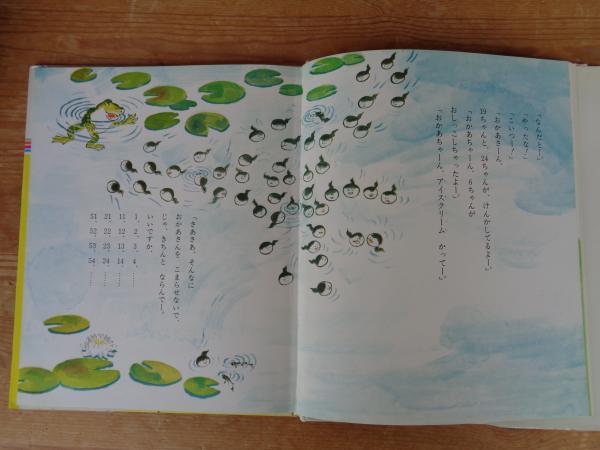 「なんだとー」
「やったな!」
「こいつー!」
「おかあさーん、
19ちゃんと、24ちゃんが、けんかしてるよー」
「おかあちゃーん、6ちゃんが
おしっこしちゃったよー」
「おかあちゃーん、アイスクリーム かってー」
「さあさあ、そんなに
おかあさんを こまらせないで、
じゃ、きちんと ならんでー。
いいですか、
1、2、3、4、……
11、12、13、14 ……
21 22 23 24 ……
51 52 53 54 ……